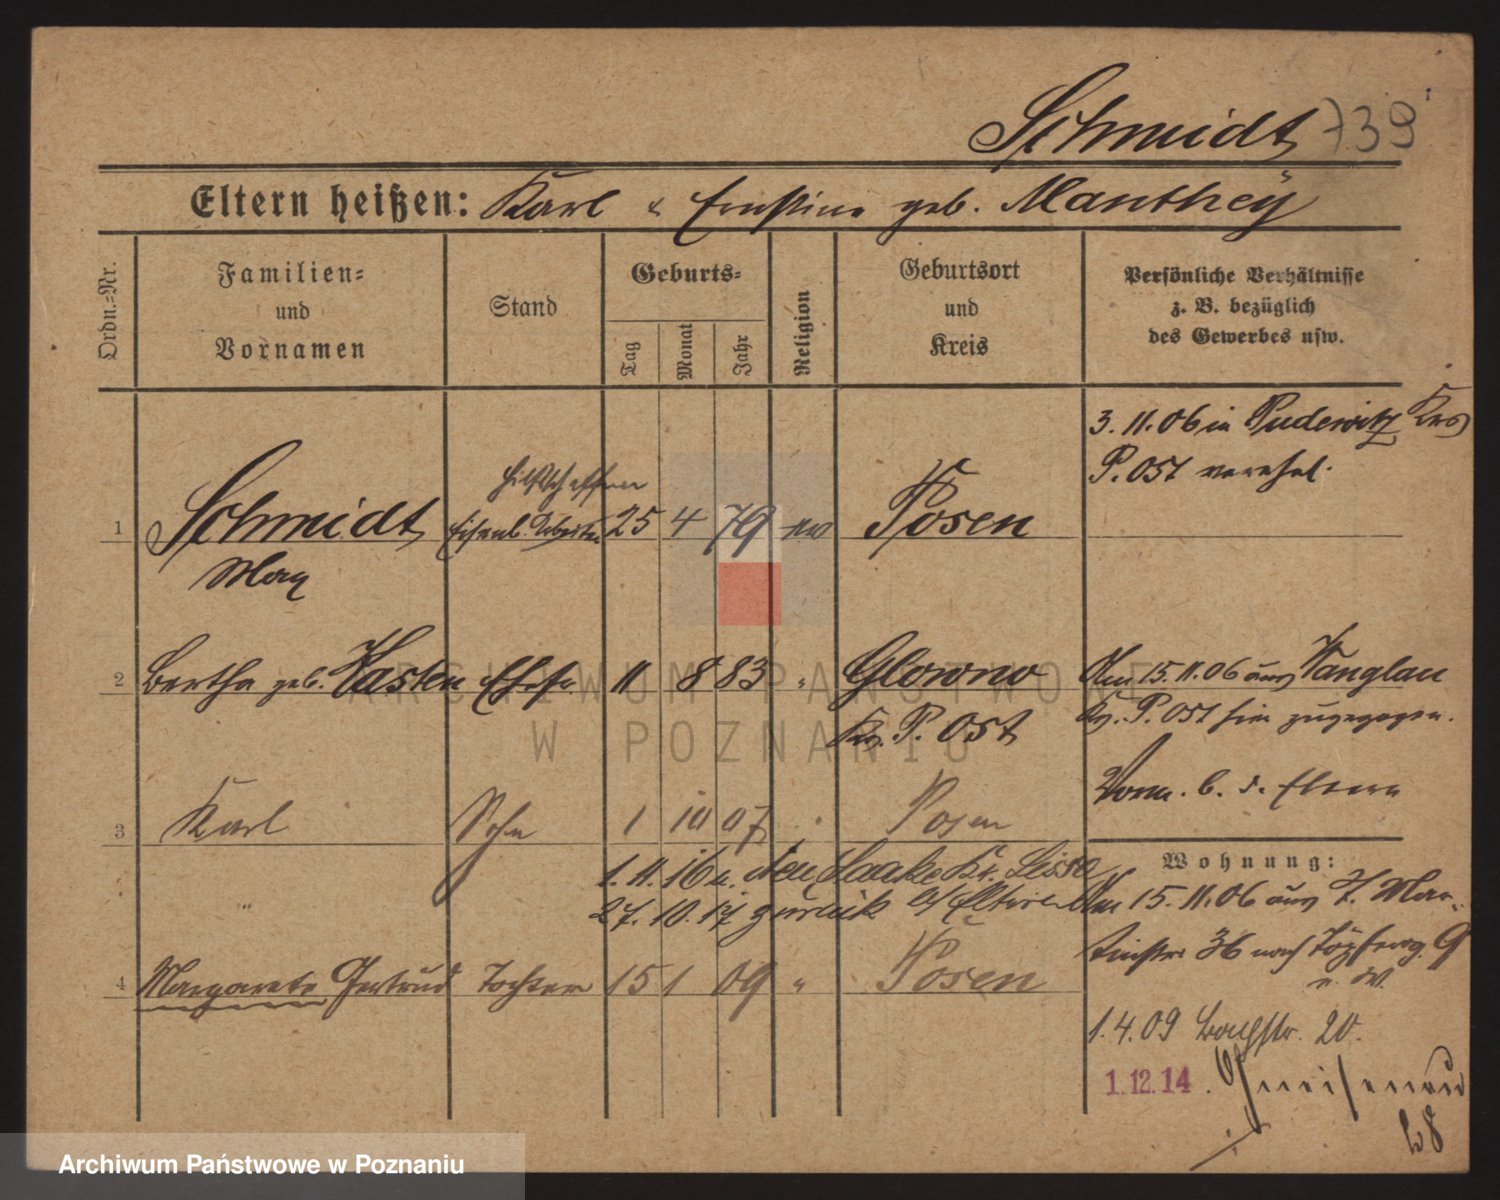 Schmidt 739
Eltern heißen: Karl & Ernstine geb. Manthey
Ordn.=Nr.
Familien=
und
Vornamen
Stand
Geburts=
Tag
Monat
Jahr
Religion
Geburtsort
und
Kreis
Persönliche Verhältnisse
z. B. bezüglich
des Gewerbes usw.
3. 11. 06 in Pudewitz Krs
P. Ost verehel.
Hilfsschaffner
1 Schmidt Eisenb. 25 4 79 ev Posen
Max
2 Bertha geb. Kasten Ehefr 11 8 83 " Glowno
Kr. P. Ost
Am 15. 11. 06 aus Wanglau
Kr. P. Ost hier zugezogen.
Vorm. b. d. Eltern
3 Karl Sohn 1 10 07 " Posen
1. 11. 16 n. Kr. Lissa
27. 10. 17 zurück b/ Eltern
4 Margarete Gertrud Tochter 15 1 09 " Posen
Wohnung:
Am 15. 11. 06 aus St. Mar-
tinstr 36 nach Töpferg. 9
1. 4. 09 Bachstr. 20.
1.12.14. Gneisenau
28
ARCHIWUM PAŃSTWOWE
W POZNANIU
Archiwum Państwowe w Poznaniu